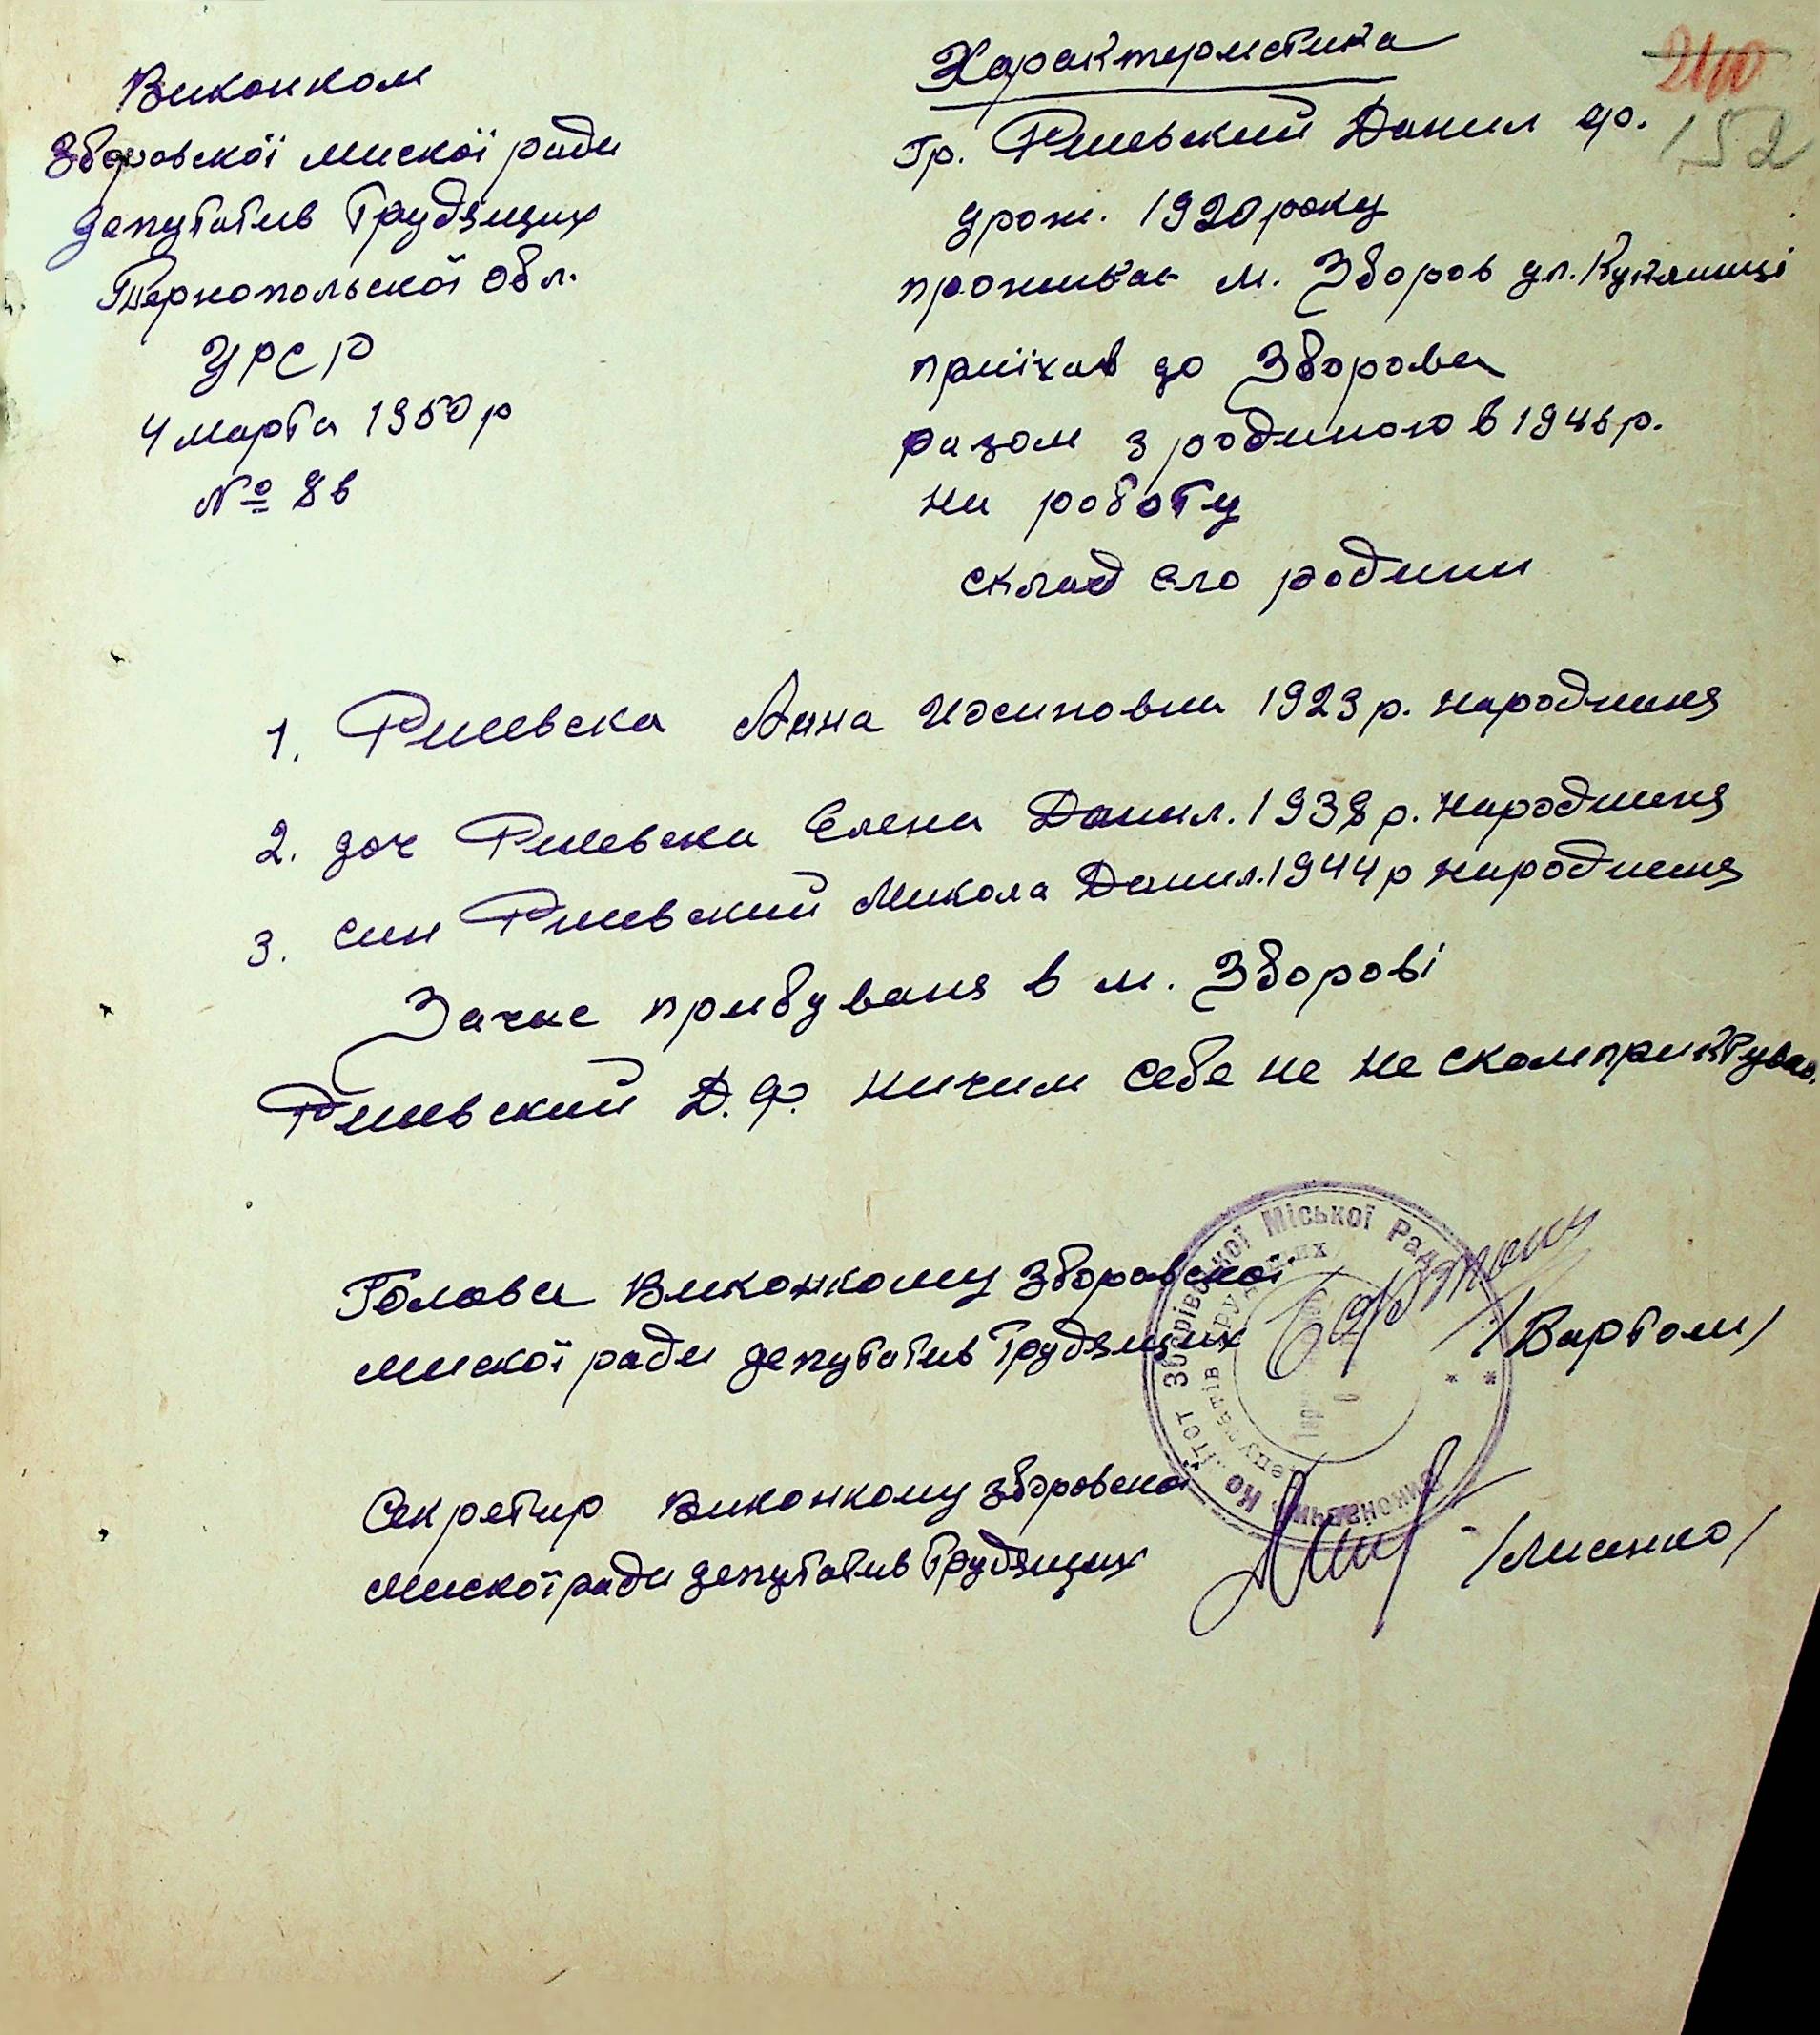 Виконком
Зборовскої мискої ради
депутатив Трудящих
Тернопольскої обл.
УРСР
4 марта 1950 р
№ 8в
Характеристика
240
152
Гр. Ришевский Данил Ф.
урож. 1920 року
проживає м. Зборов ул.
приїхав до Зборова
разом з родиною в 1946 р.
на роботу
склад єго родини
1. Ришевска Анна Иосиповна 1923 р. народженя
2. доч Ришевска Елена Данил. 1938 р. народженя
3. син Ришевский Микола Данил. 1944 р народженя
Зачас прибуваня в м. Зборові
Ришевский Д. Ф. ничим себе не не
Голова Виконкому Зборовскої
мискої ради депутатив Трудящих /Вартоли/
Секретар Виконкому Зборовскої
мискої ради депутатив Трудящих /Лисенко/
Зборівської Міської Ради
депутатів трудящих